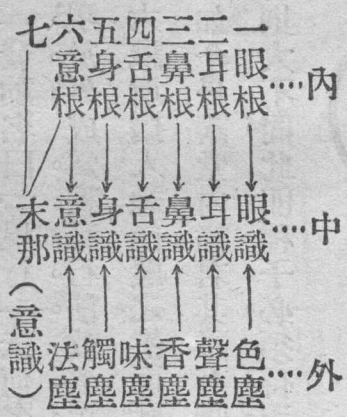 內
中
外
一眼根
眼識
色塵
二耳根
耳識
聲塵
三鼻根
鼻識
香塵
四舌根
舌識
味塵
五身根
身識
觸塵
六意根
意識
法塵
七
末那(意識)